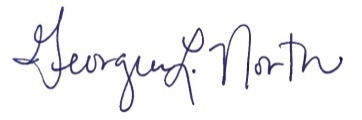 Georgia L. North